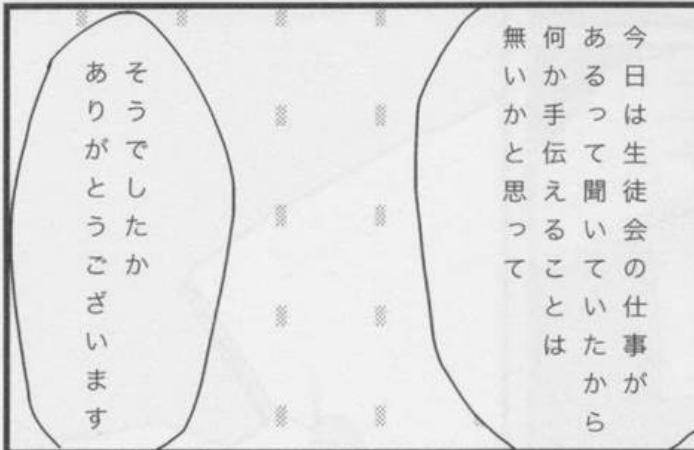 今日は生徒会の仕事が
あるって聞いていたから
何か手伝えることは
無いかと思って
そうでしたか
ありがとうございます